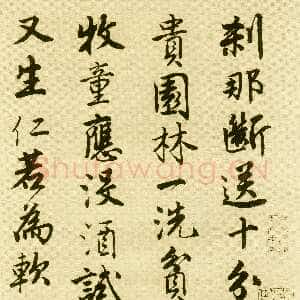 刹那斷送十分
貴園林一洗貧
牧童應沒酒試
又生仁若為軟
shufawang.CN